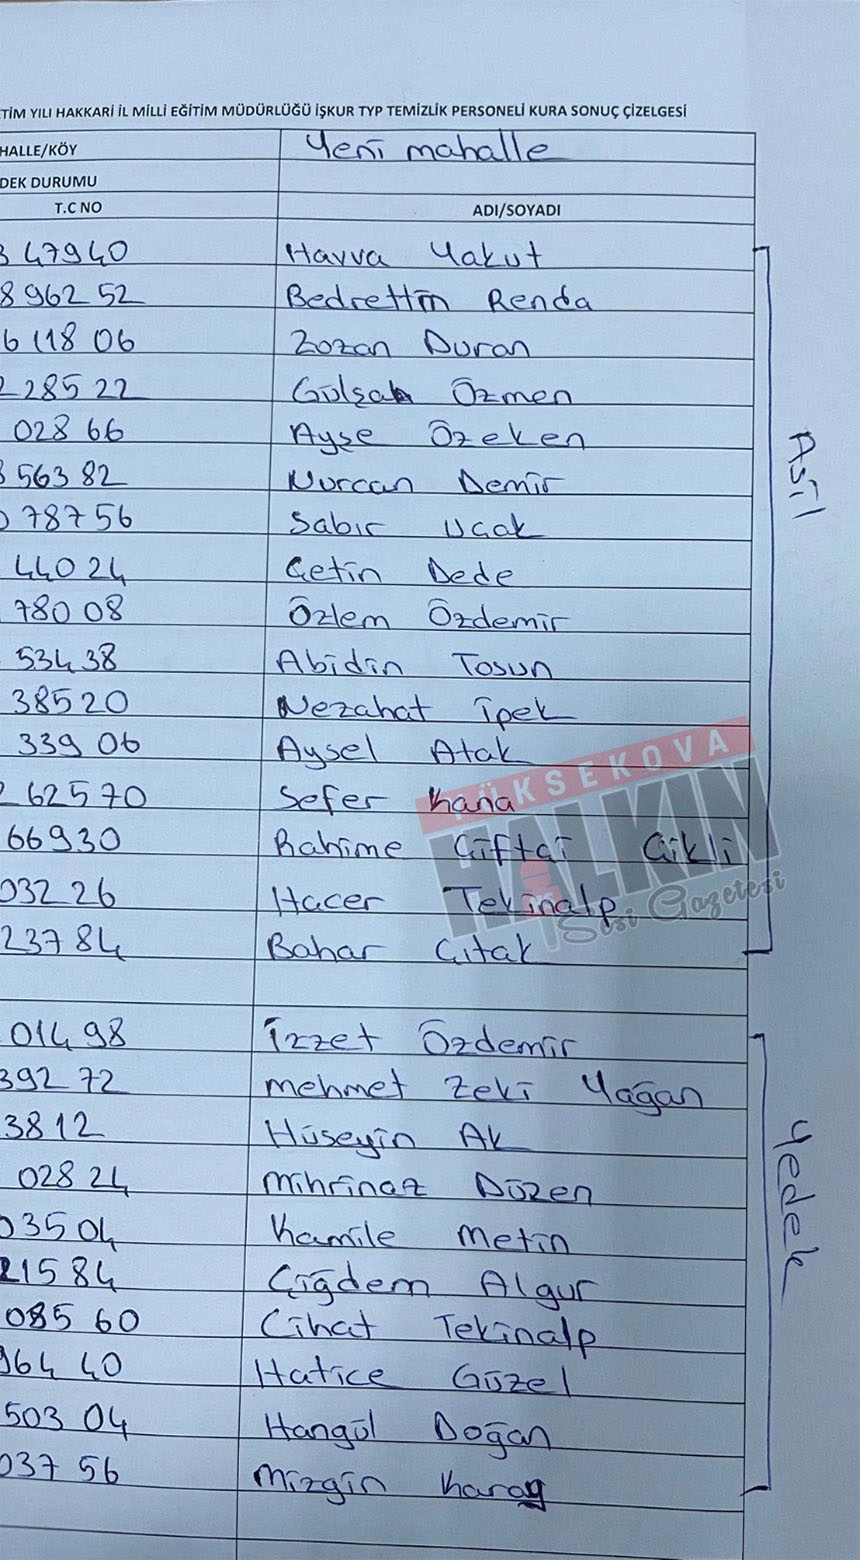 TİM YILI HAKKARİ İL MİLLİ EĞİTİM MÜDÜRLÜĞÜ İŞKUR TYP TEMİZLİK PERSONELİ KURA SONUÇ ÇİZELGESİ
HALLE/KÖY Yeni mahalle
DEK DURUMU
T.C NO ADI/SOYADI
3 47940 Havva Yakut
8 962 52 Bedrettin Renda
6 118 06 Zozan Duran
2 285 22 Gülşah Özmen
028 66 Ayşe Özeken
563 82 Nurcan Demir
787 56 Sabır Uçak
440 24 Çetin Dede
780 08 Özlem Özdemir
534 38 Abidin Tosun
385 20 Nezahat İpek
339 06 Aysel Atak
2 62570 Sefer Kana
66930 Rahime Çiftçi Çikli
032 26 Hacer Tekinalp
237 84 Bahar Çıtak
Asil
YÜKSEKOVA
HALKIN
Sesi Gazetesi
014 98 İzzet Özdemir
392 72 Mehmet Zeki Yağan
38 12 Hüseyin Ak
028 24 Mihrinaz Düzen
035 04 Kamile Metin
215 84 Çiğdem Algur
085 60 Cihat Tekinalp
964 40 Hatice Güzel
503 04 Hangül Doğan
037 56 Mizgin Karay
Yedek